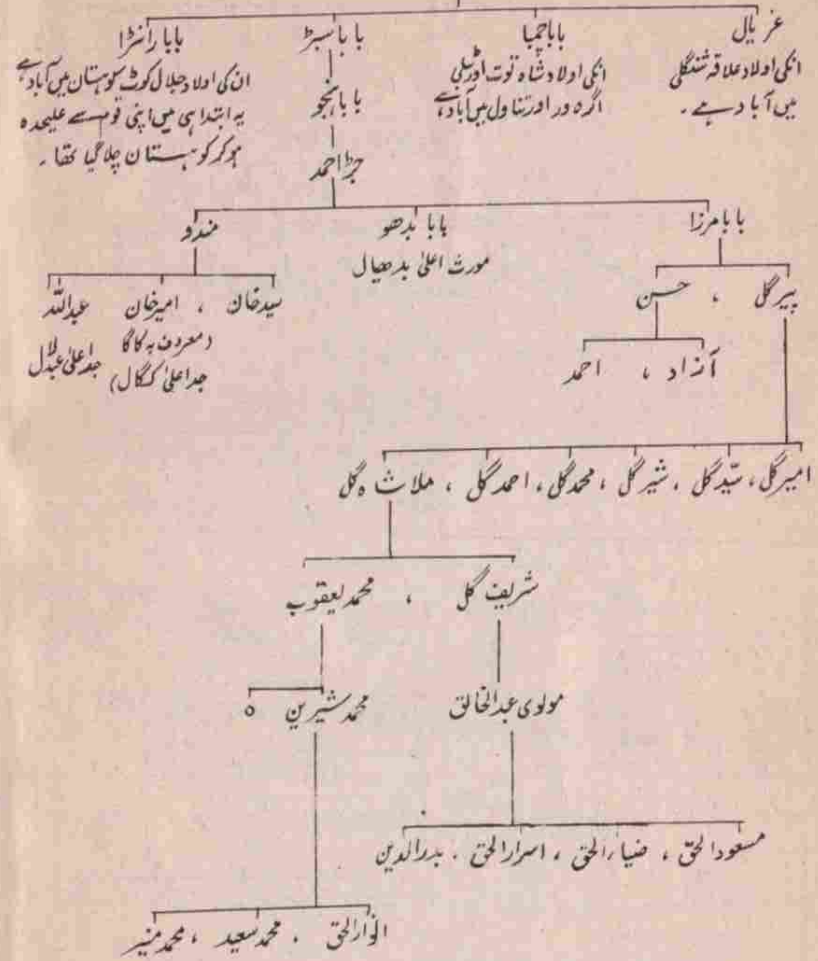 عزیال
انکی اولاد علاقہ شنگلی
میں آباد ہے۔
بابا چمبا
انکی اولاد شاہ نوت اور پلی
اگرہ ور اور تناول میں آباد ہے
بابا سبڑ
بابا نجو
جڑا احمد
بابا رانڑا
ان کی اولاد جلال کوٹ کوہستان میں آباد ہے
یہ ابتدا ہی میں اپنی قوم سے علیحدہ
ہوکر کوہستان چلا گیا تھا۔
بابا مرزا
بابا بدھو
مورث اعلیٰ بدھیال
مندو
پیر گل ، حسن
سید خان ، امیر خان عبداللہ
(معروف بہ کاگا
جد اعلیٰ کگال)
جد اعلیٰ عبدلال
آزاد ، احمد
امیر گل، سید گل ، شیر گل ، محمد گل ، احمد گل ، ملا شاہ گل
شریف گل ، محمد یعقوب
مولوی عبدالخالق
محمد شیرین ہ
مسعود الحق ، ضیاء الحق ، اسرار الحق . بدر الدین
انوار الحق ، محمد سعید ، محمد منیر